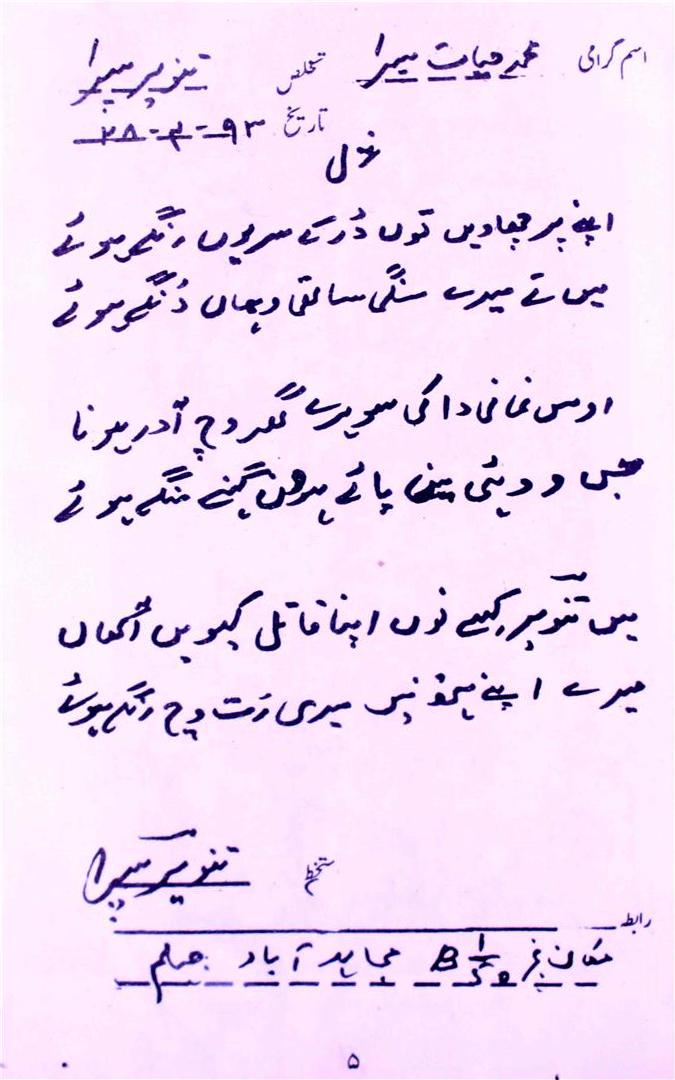 اسم گرامی محمد حیات سپرا تخلص تنویر سپرا
تاریخ ۲۸-۳-۹۳
غزل
اپنے پرچھاویں توں ڈر کے سریوں ننگے ہوئے
میں تے میرے سنگی ساتھی وچاں ڈنگے ہوئے
اوس نمانی دا کی سوہرے گھر وچ آدر ہونا
جس ودیئی پائے ہوون گہنے منگے ہوئے
میں تنویر کسے نوں اپنا قاتل کیویں آکھاں
میرے اپنے ہتھ نیں میری رت وچ رنگے ہوئے
دستخط تنویر سپرا
رابطہ
مکان نمبر B مجاہد آباد جہلم
۵